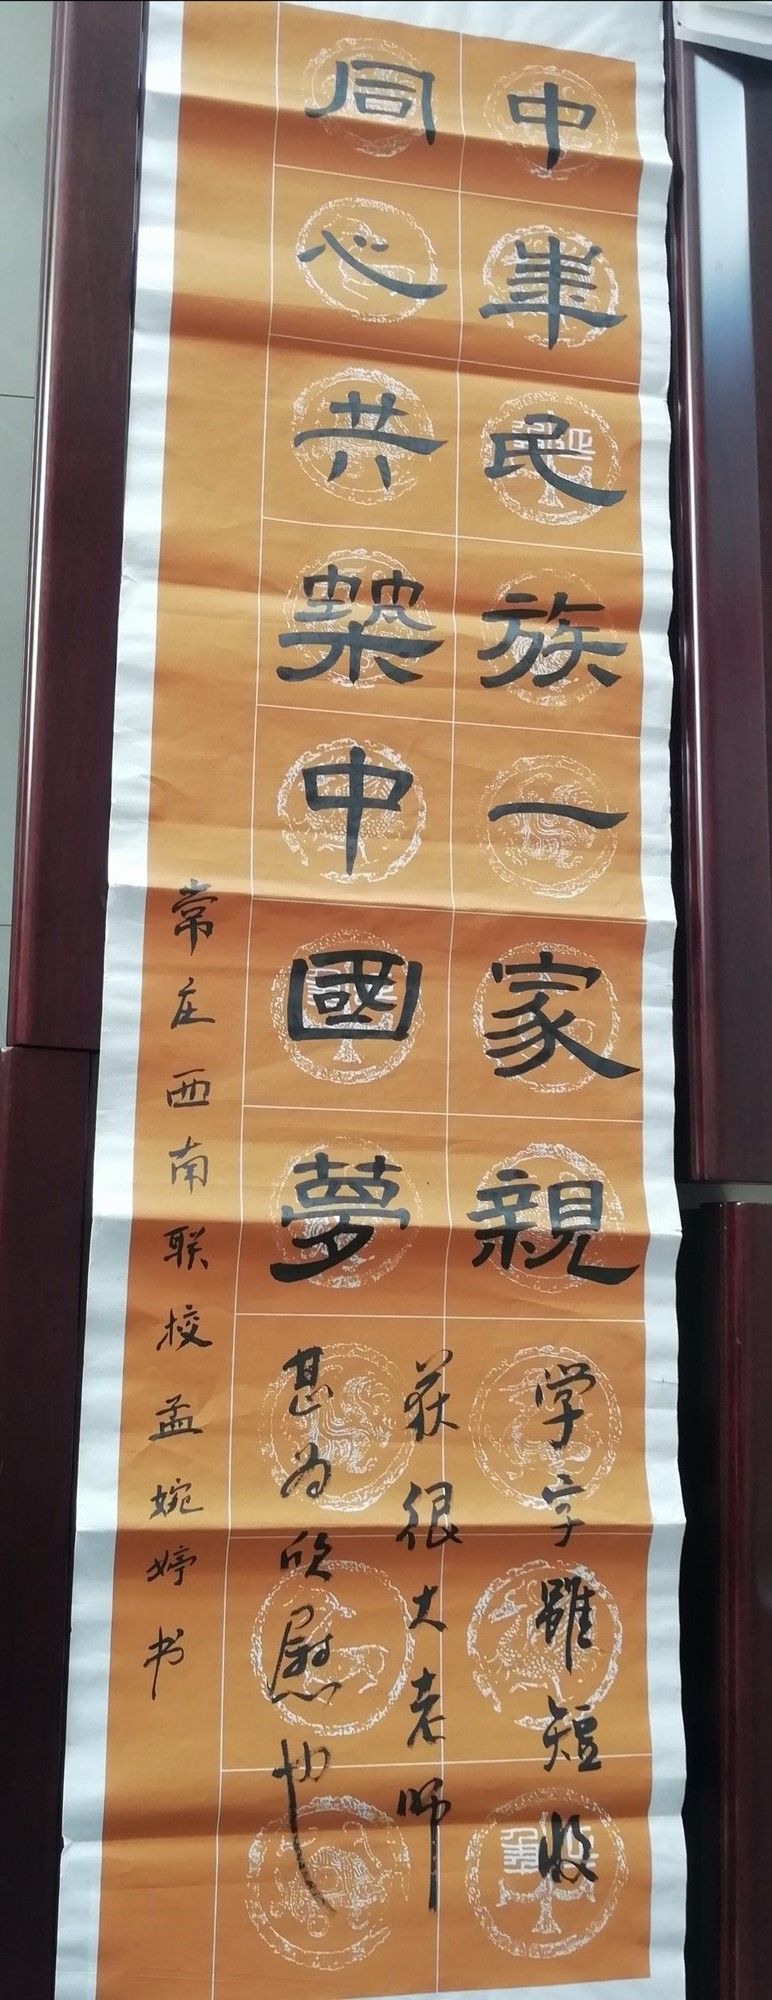 中華民族一家親
同心共築中國夢
学字雖短收
获很大老师
甚为欣慰也
常庄西南联校孟婉婷书